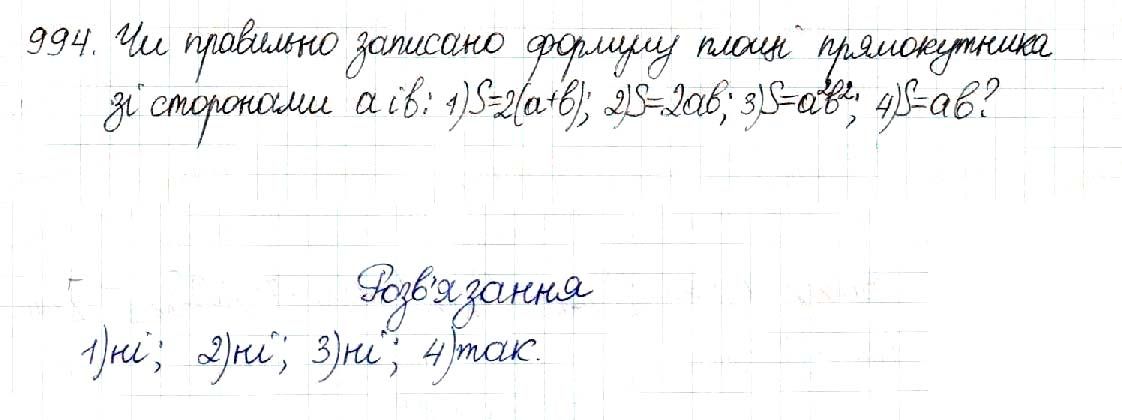 994. Чи правильно записано формулу площі прямокутника
зі сторонами a і b: 1) S=2(a+b); 2) S=2ab; 3) S=a²b²; 4) S=ab?
Розв'язання
1) ні; 2) ні; 3) ні; 4) так.